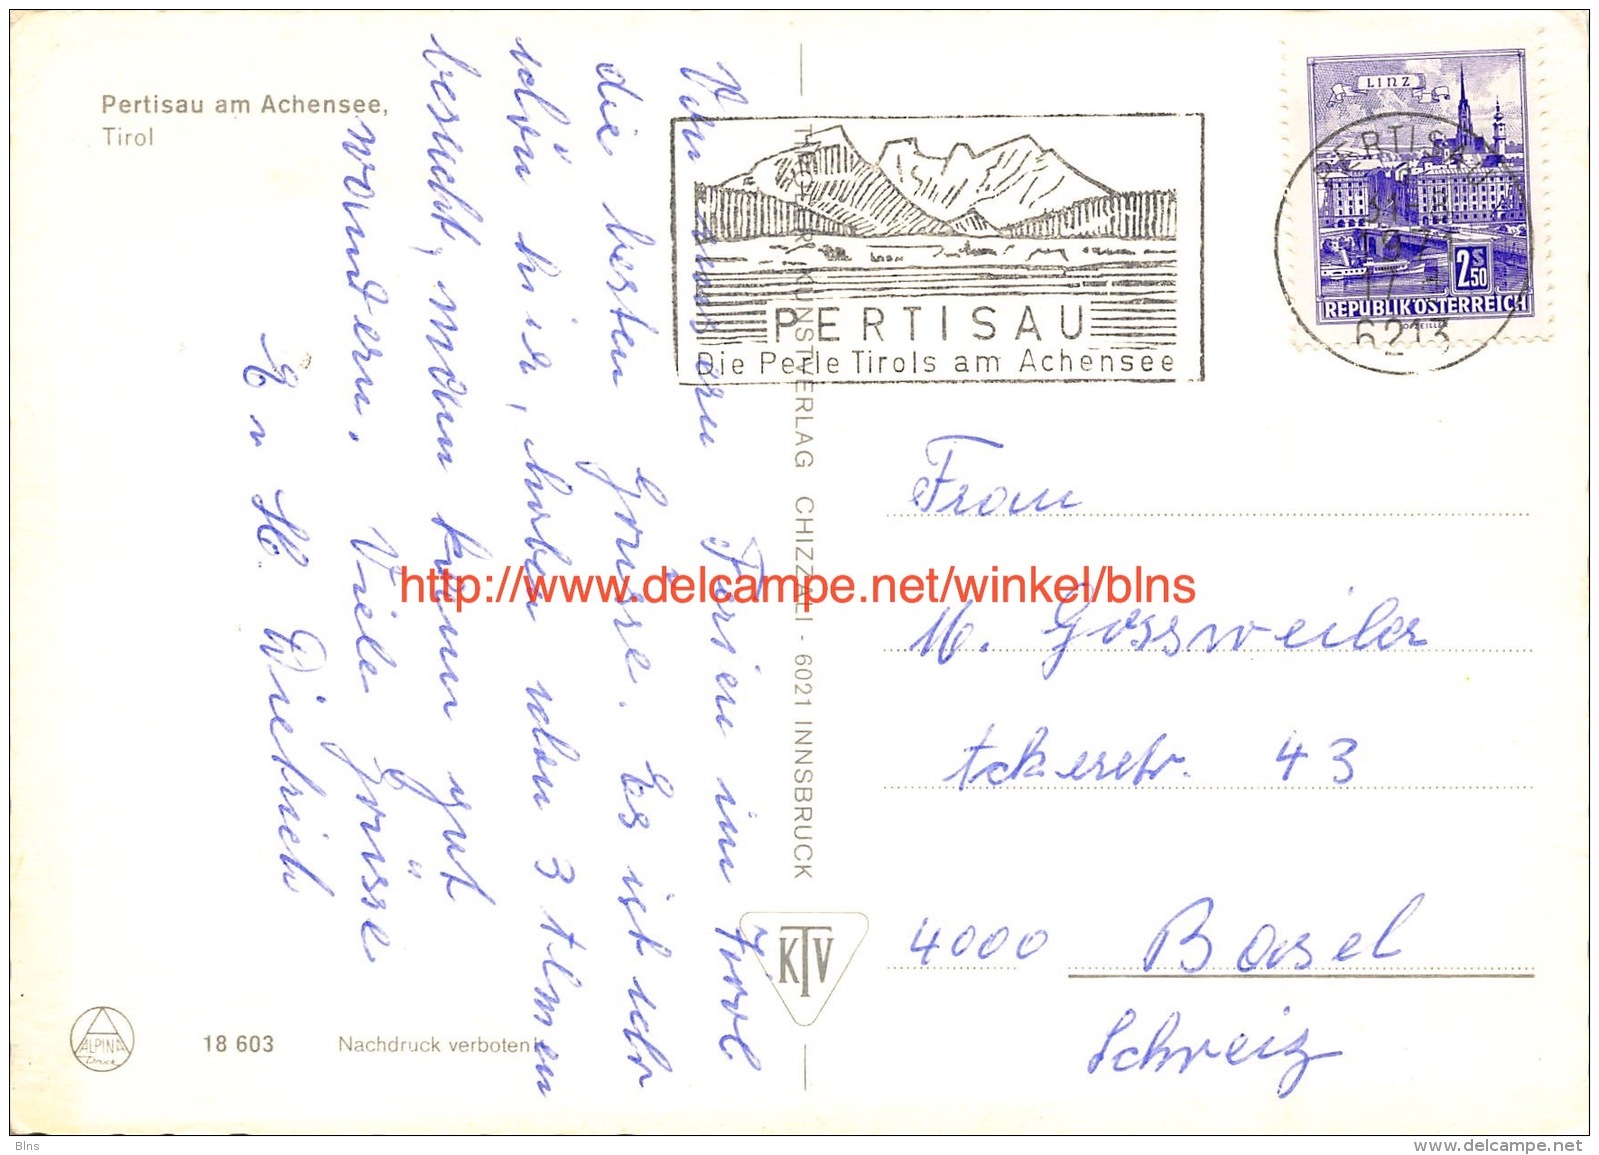 Pertisau am Achensee,
Tirol
Von unseren Ferien in Tirol
die besten Grüsse. Es ist sehr
schön hier, haben schon 3 Almen
besucht, man kann gut
wandern. Viele Grüsse
E u H. Dietrich
THEATER KUNSTVERLAG CHIZZALI - 6021 INNSBRUCK
KTV
PERTISAU
Die Perle Tirols am Achensee
LINZ
2 S 50
REPUBLIK ÖSTERREICH
PERTISAU
6213
Frau
M. Gossweiler
43
4000 Basel
Schweiz
http://www.delcampe.net/winkel/blns
ALPINA
Druck
18 603 Nachdruck verboten!
Blns
www.delcampe.net